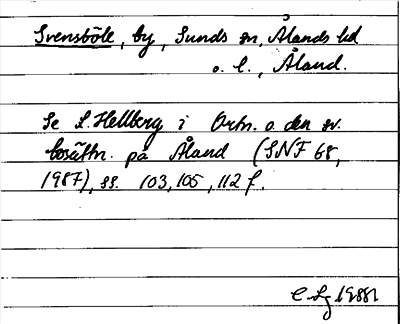 Svensböle, by, Sunds sn, Ålands hd
o. l., Åland.
Se L. Hellberg i Ortn. o. den sv.
bosättn. på Åland (SNF 68,
1987), ss. 103, 105, 112 f.
1988